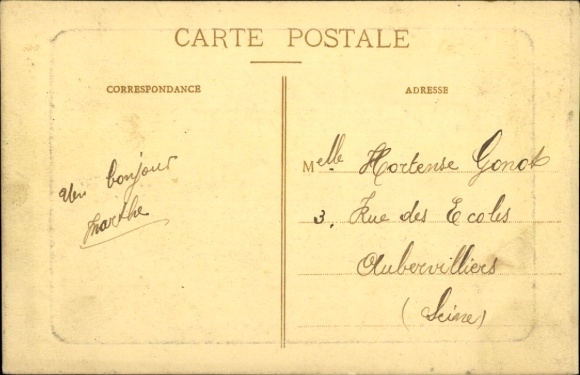 CARTE POSTALE
CORRESPONDANCE
ADRESSE
Un bonjour
Marthe
Melle Hortense Gonot
3, Rue des Ecoles
Aubervilliers
(Seine)